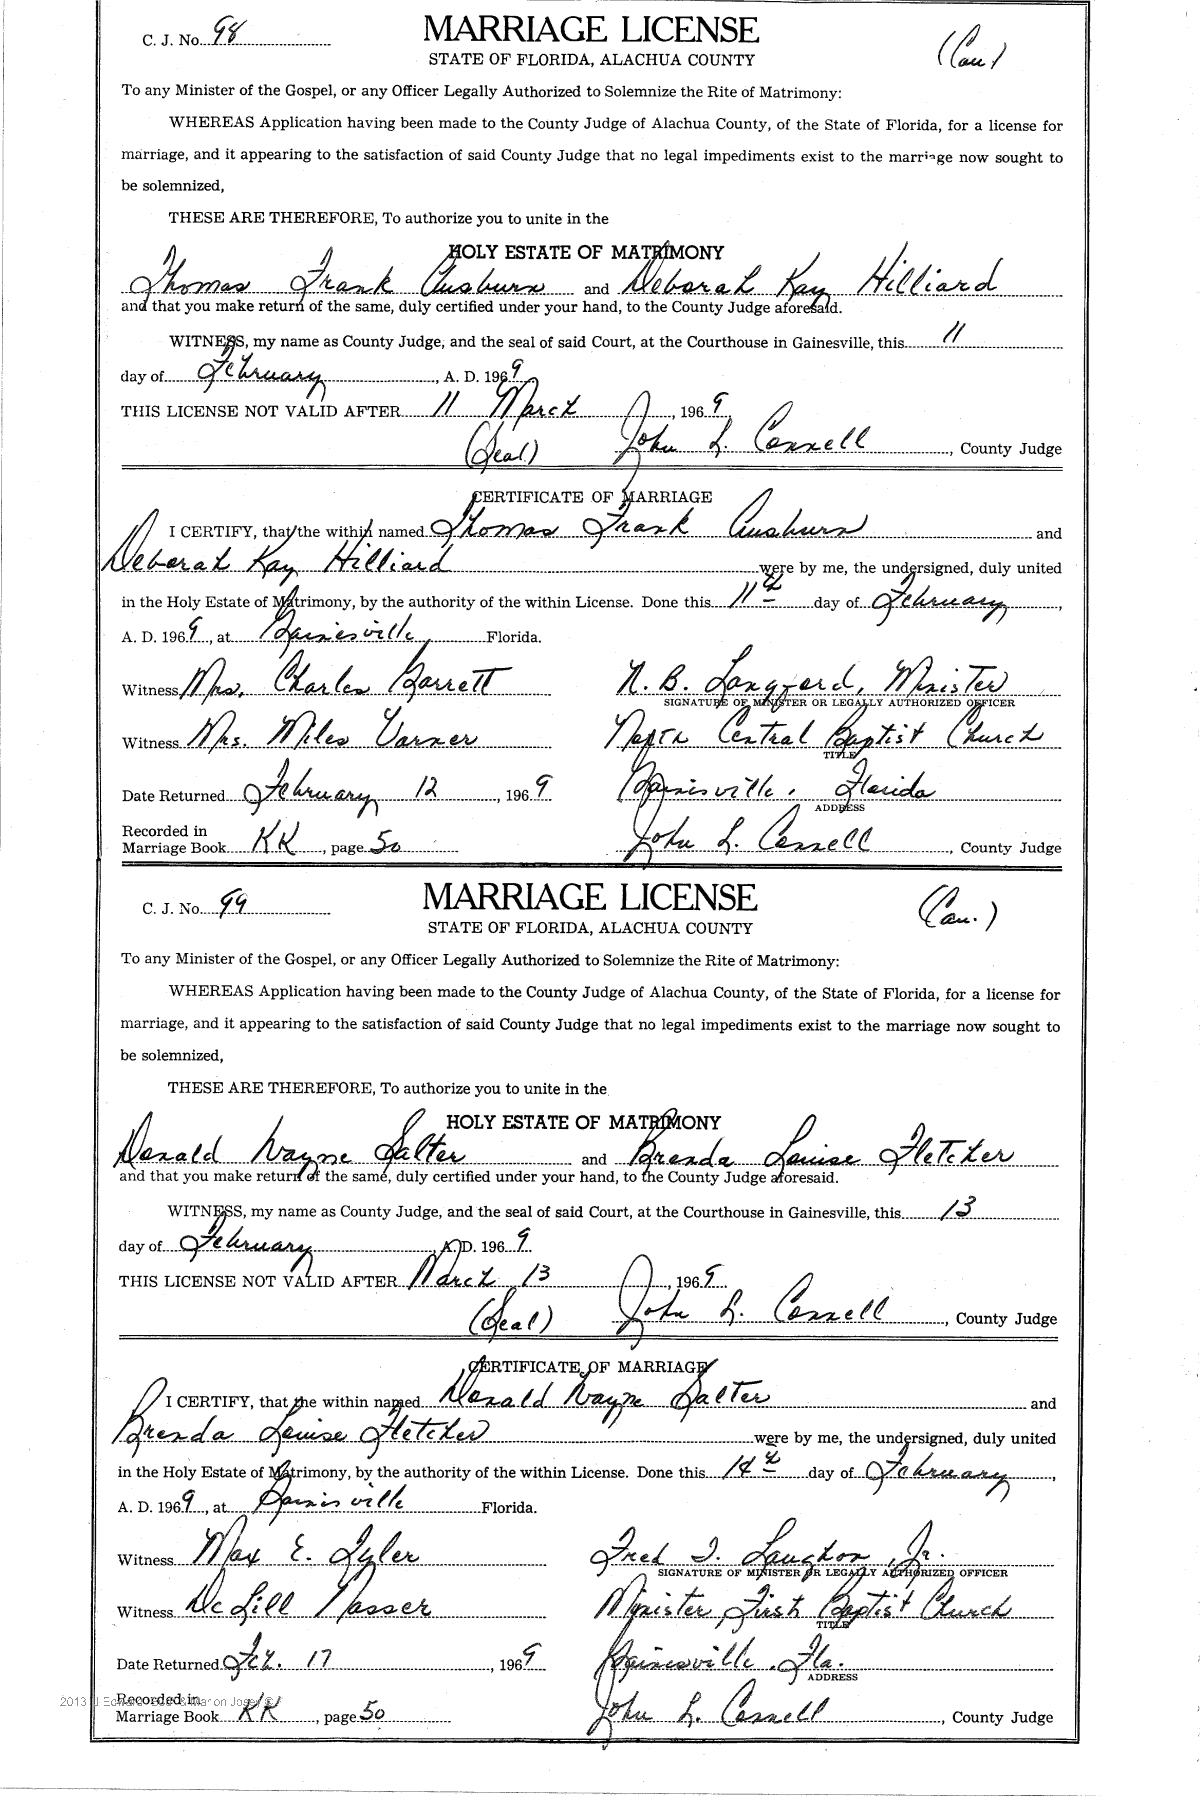 C. J. No. 98
MARRIAGE LICENSE
(Cau)
STATE OF FLORIDA, ALACHUA COUNTY
To any Minister of the Gospel, or any Officer Legally Authorized to Solemnize the Rite of Matrimony:
WHEREAS Application having been made to the County Judge of Alachua County, of the State of Florida, for a license for
marriage, and it appearing to the satisfaction of said County Judge that no legal impediments exist to the marriage now sought to
be solemnized,
THESE ARE THEREFORE, To authorize you to unite in the
HOLY ESTATE OF MATRIMONY
Thomas Frank Ausburn and Deborah Kay Hilliard
and that you make return of the same, duly certified under your hand, to the County Judge aforesaid.
WITNESS, my name as County Judge, and the seal of said Court, at the Courthouse in Gainesville, this 11
day of February, A. D. 1969
THIS LICENSE NOT VALID AFTER 11 March, 1969
(Seal) John L. Connell, County Judge
CERTIFICATE OF MARRIAGE
I CERTIFY, that the within named Thomas Frank Ausburn and
Deborah Kay Hilliard were by me, the undersigned, duly united
in the Holy Estate of Matrimony, by the authority of the within License. Done this 11th day of February,
A. D. 1969, at Gainesville, Florida.
Witness Mrs. Charles Barrett N. B. Langford, Minister
SIGNATURE OF MINISTER OR LEGALLY AUTHORIZED OFFICER
Witness Mrs. Miles Varner North Central Baptist Church
TITLE
Date Returned February 12, 1969 Gainesville, Florida
ADDRESS
Recorded in
Marriage Book KK, page 50 John L. Connell, County Judge
C. J. No. 99
MARRIAGE LICENSE
(Cau.)
STATE OF FLORIDA, ALACHUA COUNTY
To any Minister of the Gospel, or any Officer Legally Authorized to Solemnize the Rite of Matrimony:
WHEREAS Application having been made to the County Judge of Alachua County, of the State of Florida, for a license for
marriage, and it appearing to the satisfaction of said County Judge that no legal impediments exist to the marriage now sought to
be solemnized,
THESE ARE THEREFORE, To authorize you to unite in the
HOLY ESTATE OF MATRIMONY
Donald Wayne Salter and Brenda Louise Fletcher
and that you make return of the same, duly certified under your hand, to the County Judge aforesaid.
WITNESS, my name as County Judge, and the seal of said Court, at the Courthouse in Gainesville, this 13
day of February A. D. 1969
THIS LICENSE NOT VALID AFTER March 13, 1969
(Seal) John L. Connell, County Judge
CERTIFICATE OF MARRIAGE
I CERTIFY, that the within named Donald Wayne Salter and
Brenda Louise Fletcher were by me, the undersigned, duly united
in the Holy Estate of Matrimony, by the authority of the within License. Done this 14th day of February,
A. D. 1969, at Gainesville Florida.
Witness Max E. Tyler Fred T. Laughon, Jr.
SIGNATURE OF MINISTER OR LEGALLY AUTHORIZED OFFICER
Witness Nasser Minister, First Baptist Church
TITLE
Date Returned Feb. 17, 1969 Gainesville, Fla.
ADDRESS
2013
Recorded in
Marriage Book KK, page 50 John L. Connell, County Judge